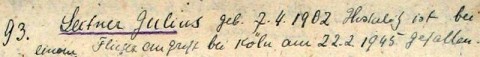 93. Leitner Julius geb. 7.4.1902 ist bei
einem Fliegerangriff bei Köln am 22.2 1945 gefallen.